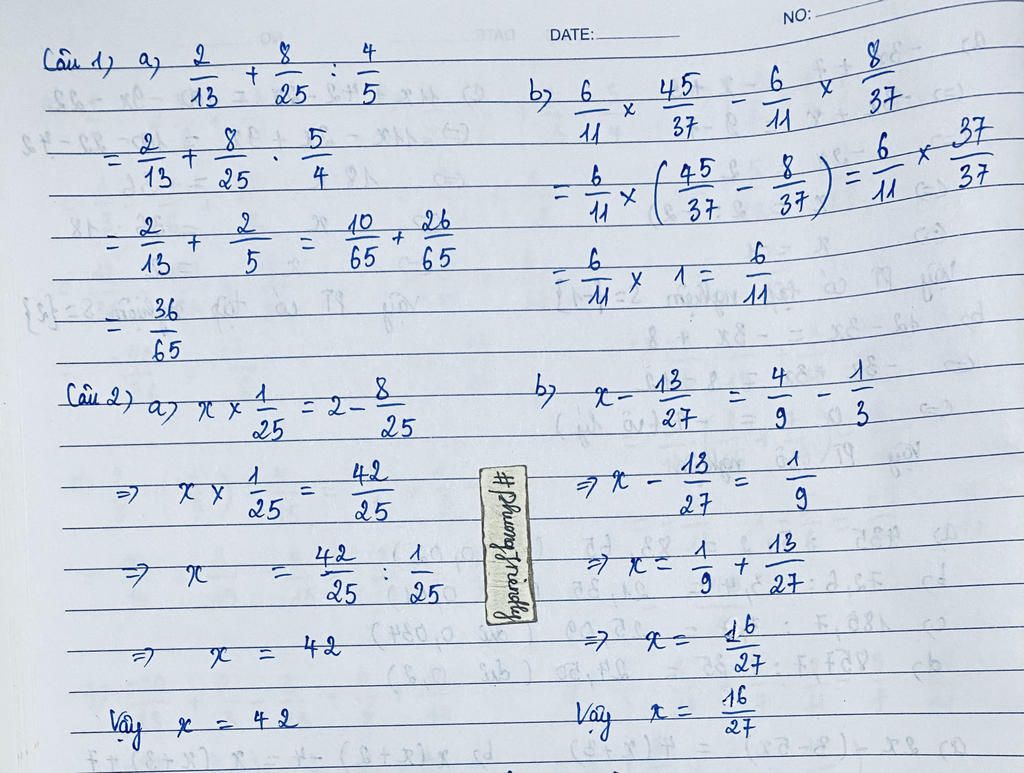 NO:
DATE:
Câu 1) a) 2/13 + 8/25 : 4/5
= 2/13 + 8/25 . 5/4
= 2/13 + 2/5 = 10/65 + 26/65
= 36/65
b) 6/11 × 45/37 - 6/11 × 8/37
= 6/11 × (45/37 - 8/37) = 6/11 × 37/37
= 6/11 × 1 = 6/11
Câu 2) a) x × 1/25 = 2 - 8/25
=> x × 1/25 = 42/25
=> x = 42/25 : 1/25
=> x = 42
Vậy x = 42
b) x - 13/27 = 4/9 - 1/3
=> x - 13/27 = 1/9
=> x = 1/9 + 13/27
=> x = 16/27
Vậy x = 16/27
#phuongfriendly